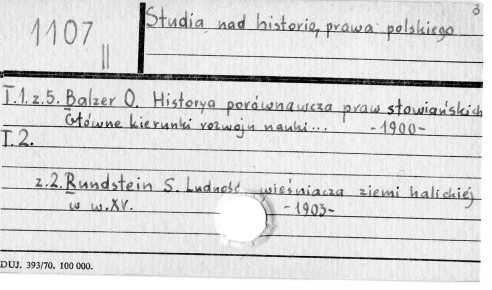 3
1107
II
Studia nad historią prawa polskiego
T.1.z.5. Balzer O. Historya porównawcza praw słowiańskich
Główne kierunki rozwoju nauki... -1900-
T.2.
z.2. Rundstein S. Ludność wieśniacza ziemi halickiej
w w.XV. -1903-
DUJ. 393/70. 100 000.